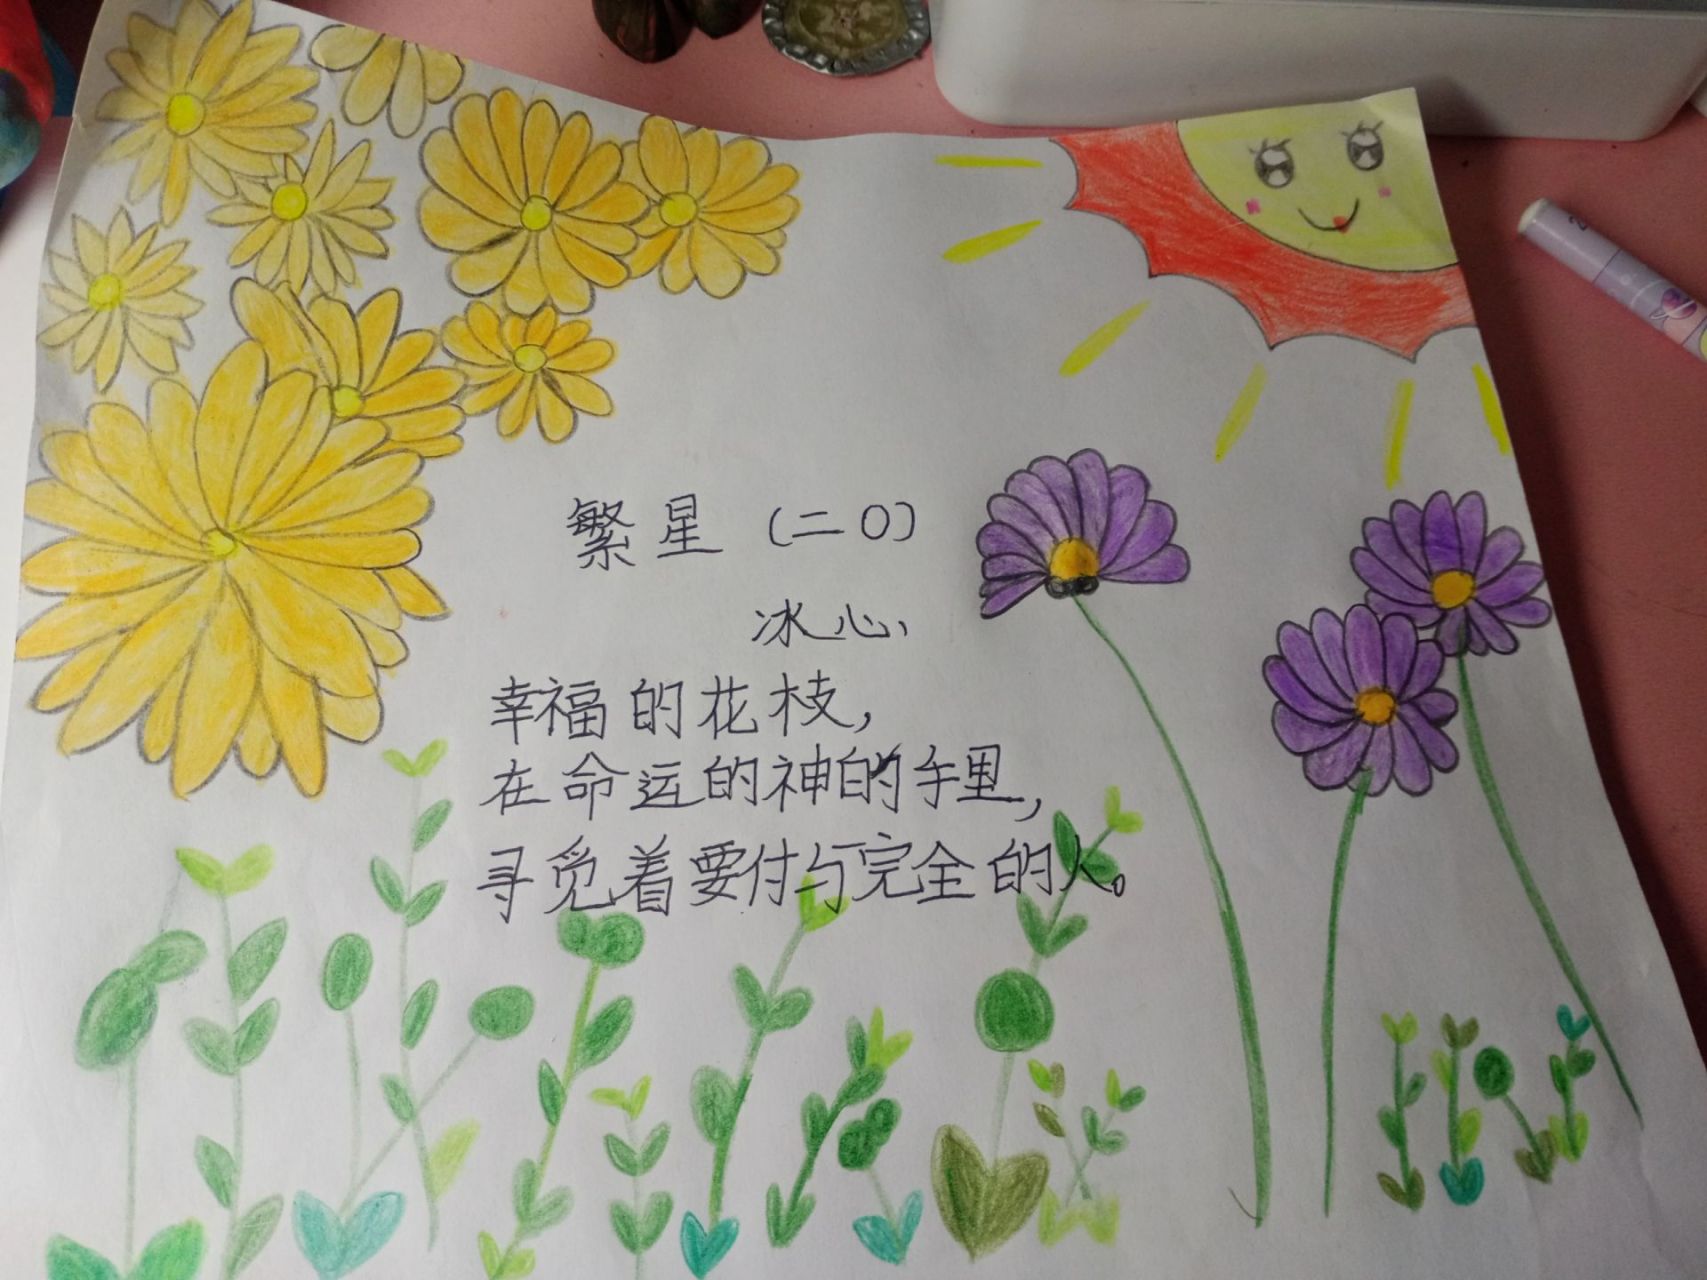 繁星（二〇）
冰心、
幸福的花枝，
在命运的神的手里，
寻觅着要付与完全的人。